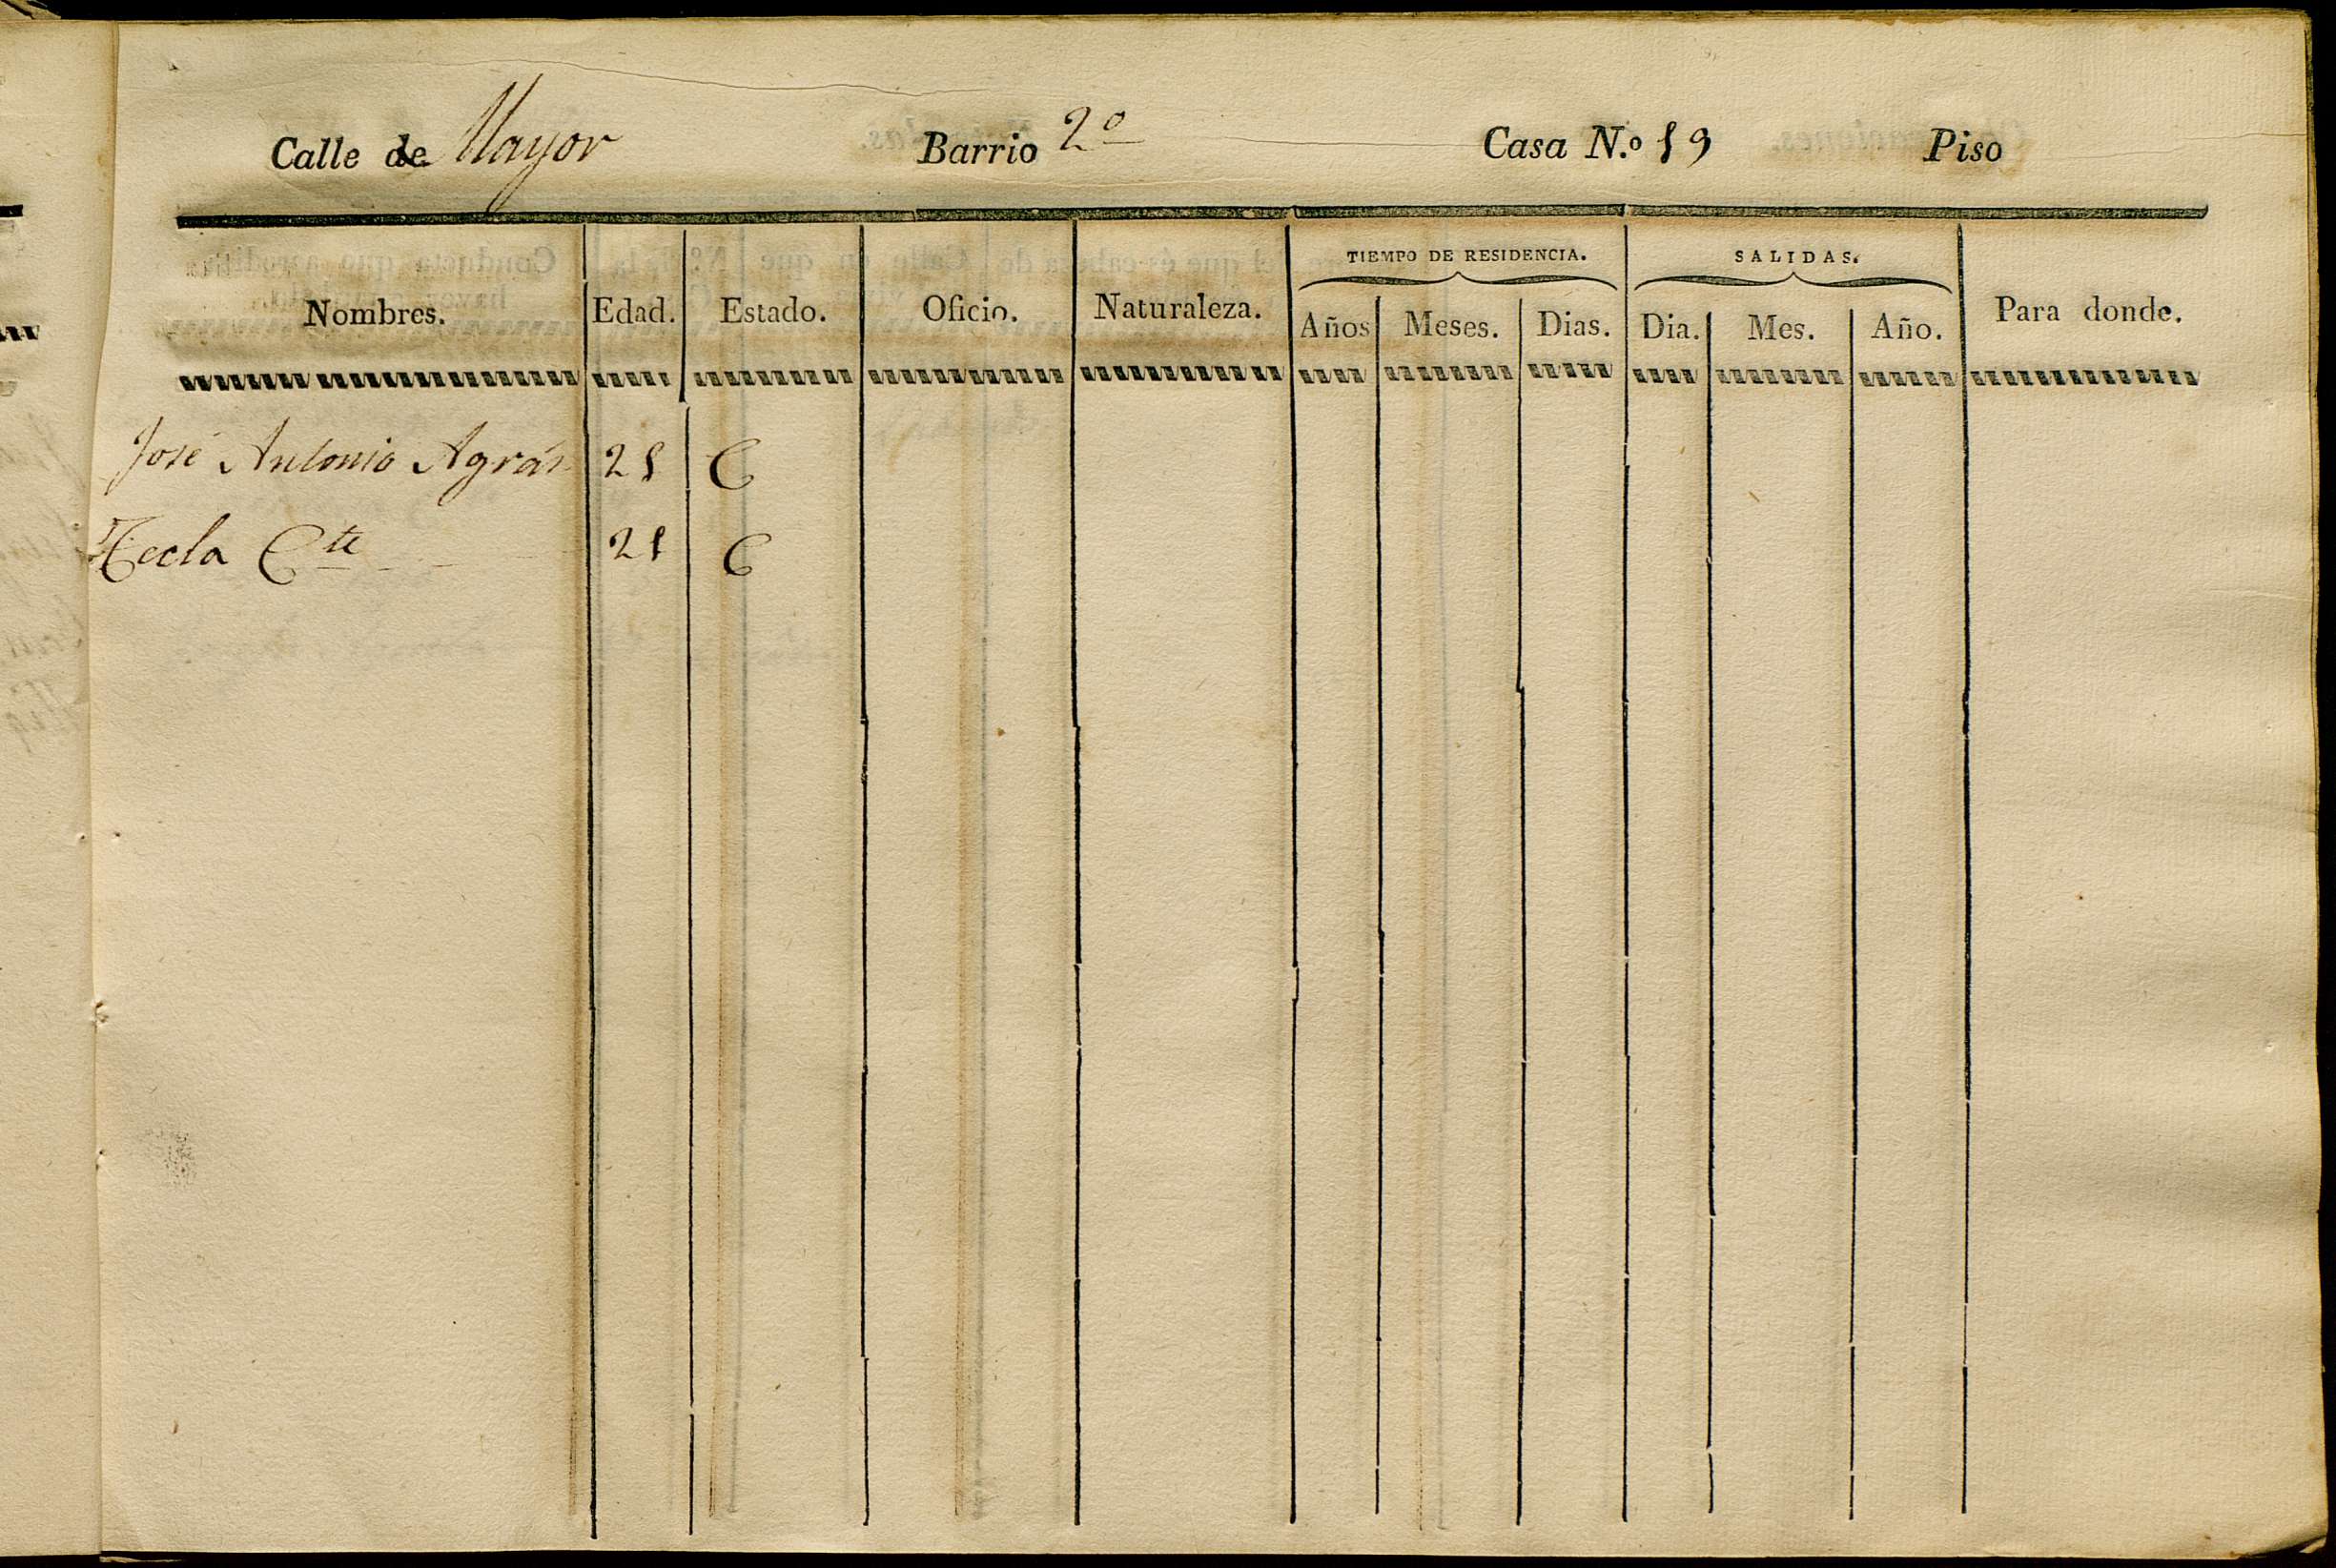 Calle de Mayor Barrio 2º Casa N.º 19 Piso
TIEMPO DE RESIDENCIA. SALIDAS.
Nombres. Edad. Estado. Oficio. Naturaleza. Años Meses. Dias. Dia. Mes. Año. Para donde.
José Antonio Agrás 21 C
Tecla Cte 21 C